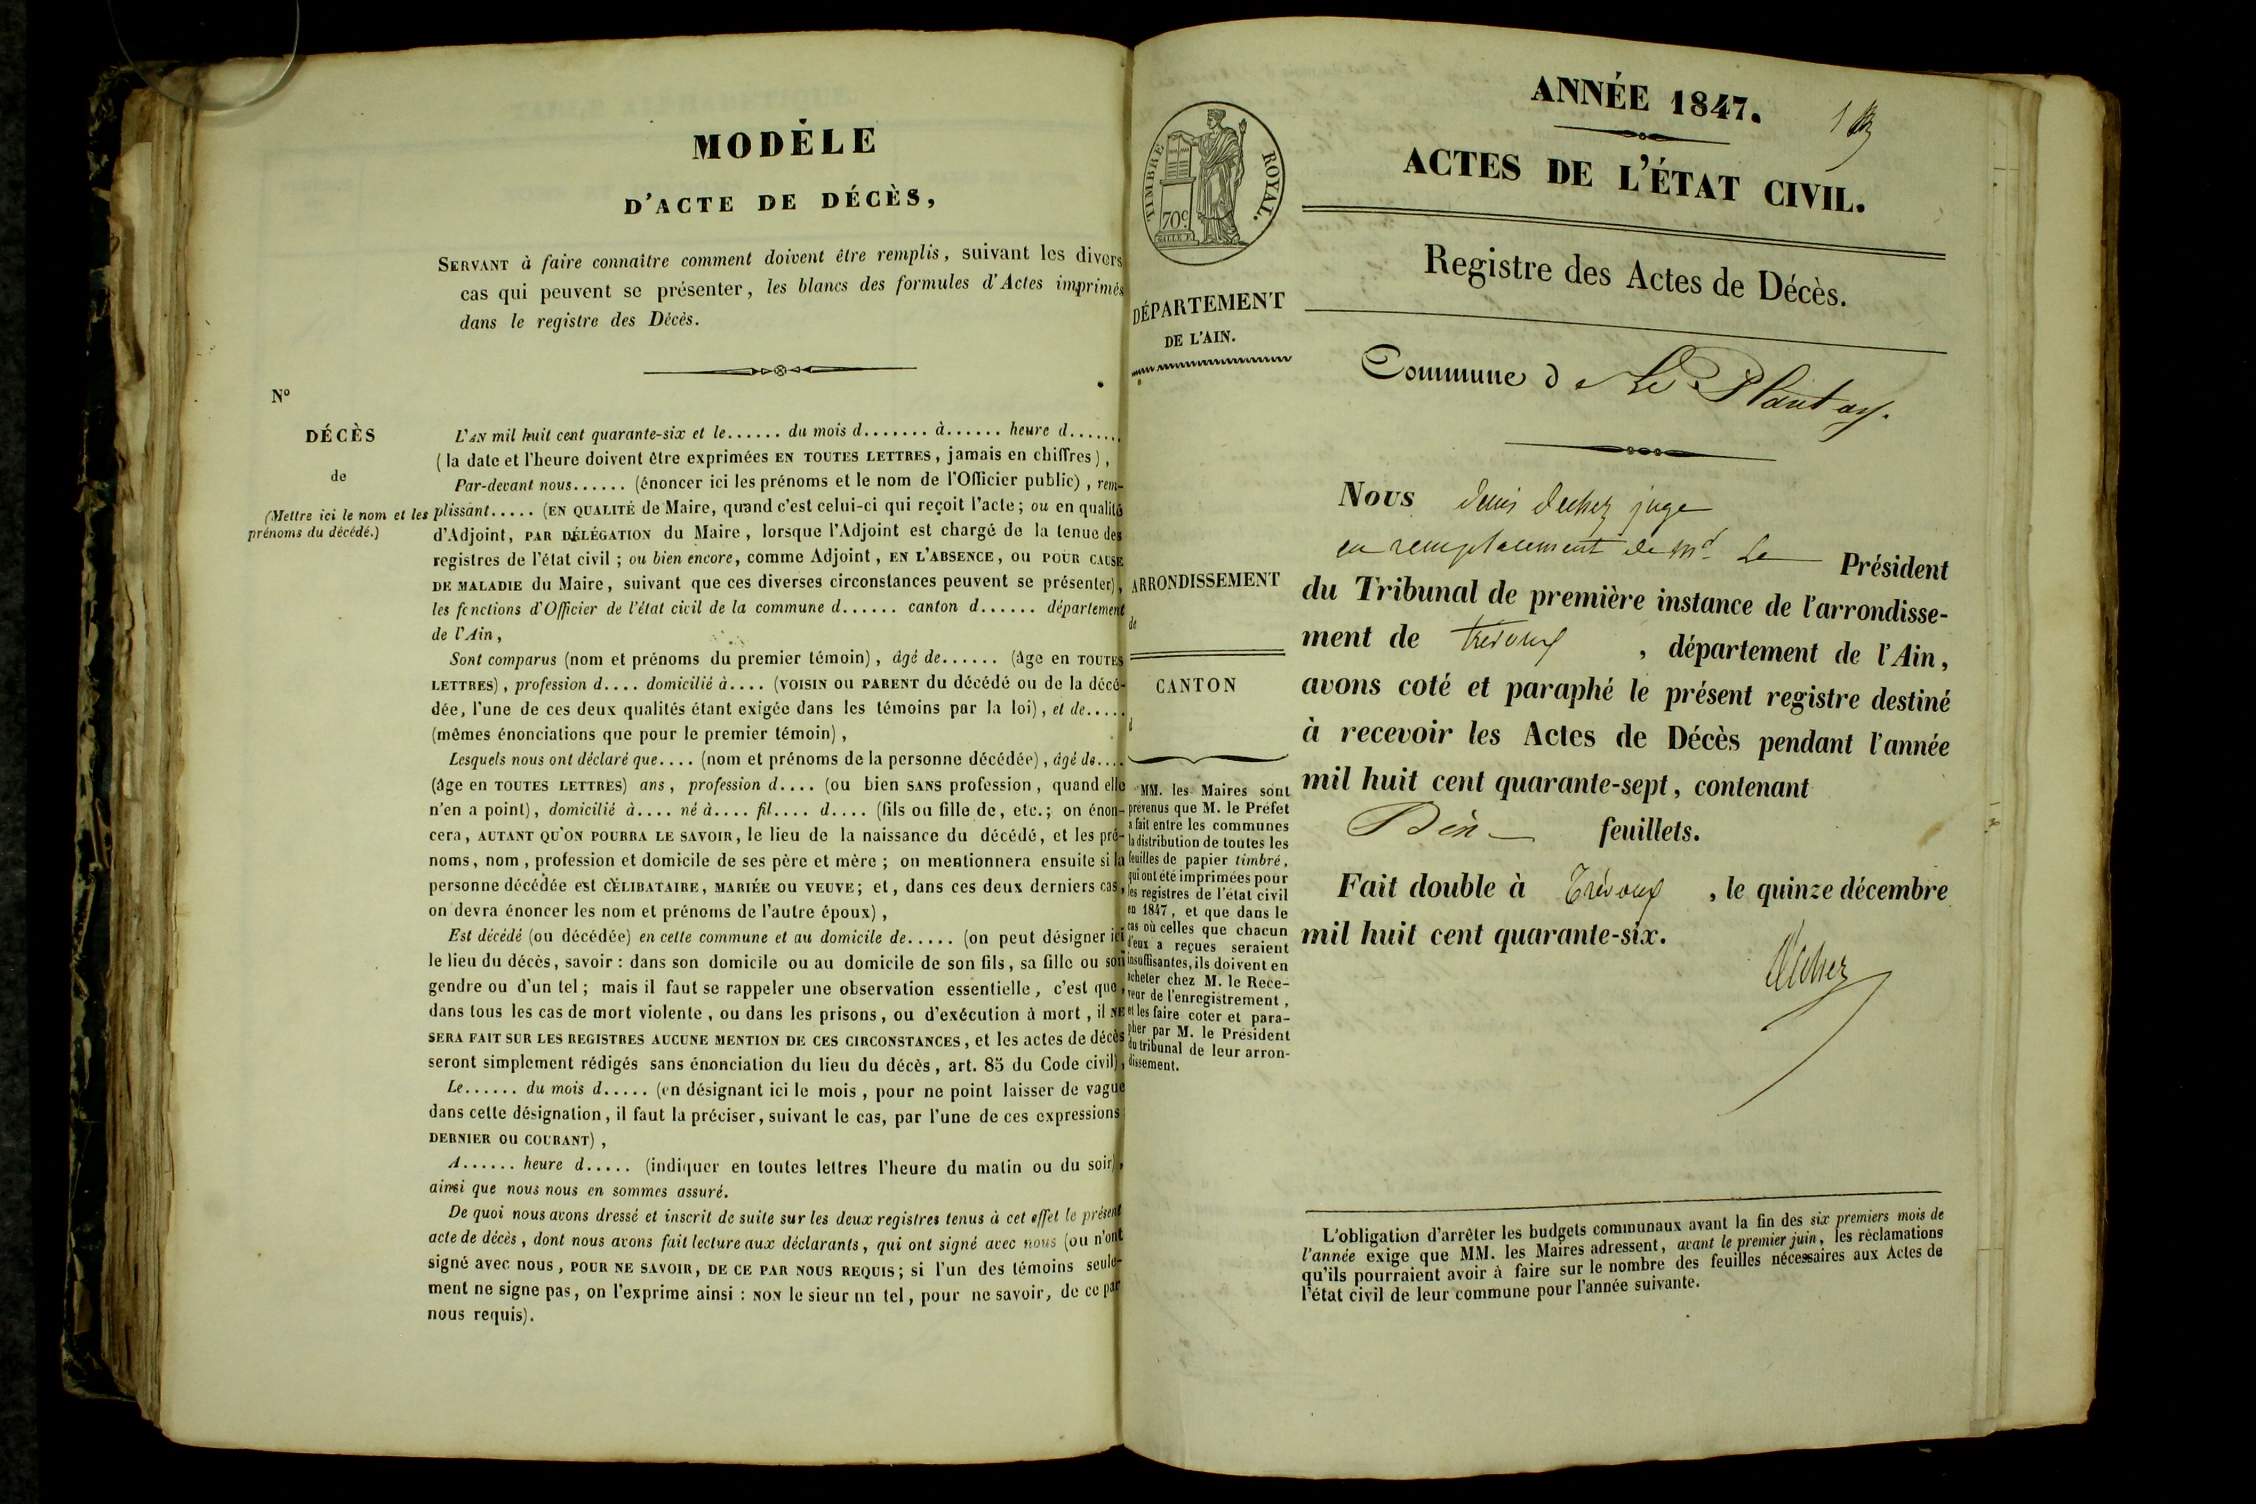 MODÈLE
D'ACTE DE DÉCÈS,
SERVANT à faire connaître comment doivent être remplis, suivant les divers
cas qui peuvent se présenter, les blancs des formules d'Actes imprimés
dans le registre des Décès.
No
DÉCÈS
de
(Mettre ici le nom et les
prénoms du décédé.)
L'AN mil huit cent quarante-six et le...... du mois d....... à...... heure d.......
(la date et l'heure doivent être exprimées EN TOUTES LETTRES, jamais en chiffres),
Par-devant nous...... (énoncer ici les prénoms et le nom de l'Officier public), rem-
plissant..... (EN QUALITÉ de Maire, quand c'est celui-ci qui reçoit l'acte; ou en qualité
d'Adjoint, PAR DÉLÉGATION du Maire, lorsque l'Adjoint est chargé de la tenue des
registres de l'état civil; ou bien encore, comme Adjoint, EN L'ABSENCE, OU POUR CAUSE
DE MALADIE du Maire, suivant que ces diverses circonstances peuvent se présenter),
les fonctions d'Officier de l'état civil de la commune d...... canton d...... département
de l'Ain,
Sont comparus (nom et prénoms du premier témoin), âgé de...... (âge en TOUTES
LETTRES), profession d.... domicilié à.... (VOISIN OU PARENT du décédé ou de la décé-
dée, l'une de ces deux qualités étant exigée dans les témoins par la loi), et de.....
(mêmes énonciations que pour le premier témoin),
Lesquels nous ont déclaré que.... (nom et prénoms de la personne décédée), âgé de....
(âge en TOUTES LETTRES) ans, profession d.... (ou bien SANS profession, quand elle
n'en a point), domicilié à.... né à.... fil.... d.... (fils ou fille de, etc.; on énon-
cera, AUTANT QU'ON POURRA LE SAVOIR, le lieu de la naissance du décédé, et les pré-
noms, nom, profession et domicile de ses père et mère; on mentionnera ensuite si la
personne décédée est CÉLIBATAIRE, MARIÉE OU VEUVE; et, dans ces deux derniers cas,
on devra énoncer les nom et prénoms de l'autre époux),
Est décédé (ou décédée) en cette commune et au domicile de..... (on peut désigner ici
le lieu du décès, savoir: dans son domicile ou au domicile de son fils, sa fille ou son
gendre ou d'un tel; mais il faut se rappeler une observation essentielle, c'est que,
dans tous les cas de mort violente, ou dans les prisons, ou d'exécution à mort, il NE
SERA FAIT SUR LES REGISTRES AUCUNE MENTION DE CES CIRCONSTANCES, et les actes de décès
seront simplement rédigés sans énonciation du lieu du décès, art. 85 du Code civil),
Le...... du mois d..... (en désignant ici le mois, pour ne point laisser de vague
dans cette désignation, il faut la préciser, suivant le cas, par l'une de ces expressions
DERNIER OU COURANT),
A...... heure d..... (indiquer en toutes lettres l'heure du matin ou du soir),
ainsi que nous nous en sommes assuré.
De quoi nous avons dressé et inscrit de suite sur les deux registres tenus à cet effet le présent
acte de décès, dont nous avons fait lecture aux déclarants, qui ont signé avec nous (ou n'ont
signé avec nous, POUR NE SAVOIR, DE CE PAR NOUS REQUIS; si l'un des témoins seule-
ment ne signe pas, on l'exprime ainsi: NON le sieur un tel, pour ne savoir, de ce par
nous requis).
TIMBRE ROYAL.
70c.
DÉPARTEMENT
DE L'AIN.
ARRONDISSEMENT
de
CANTON
d
MM. les Maires sont
prévenus que M. le Préfet
a fait entre les communes
la distribution de toutes les
feuilles de papier timbré,
qui ont été imprimées pour
les registres de l'état civil
en 1847, et que dans le
cas où celles que chacun
d'eux a reçues seraient
insuffisantes, ils doivent en
acheter chez M. le Rece-
veur de l'enregistrement,
et les faire coter et para-
pher par M. le Président
du tribunal de leur arron-
dissement.
ANNÉE 1847.
1
ACTES DE L'ÉTAT CIVIL.
Registre des Actes de Décès.
Commune d Le Plantay.
Nous Denis Dechez juge
en remplacement de Mr Le Président
du Tribunal de première instance de l'arrondisse-
ment de Trévoux, département de l'Ain,
avons coté et paraphé le présent registre destiné
à recevoir les Actes de Décès pendant l'année
mil huit cent quarante-sept, contenant
Dix feuillets.
Fait double à Trévoux, le quinze décembre
mil huit cent quarante-six.
Dechez
L'obligation d'arrêter les budgets communaux avant la fin des six premiers mois de
l'année exige que MM. les Maires adressent, avant le premier juin, les réclamations
qu'ils pourraient avoir à faire sur le nombre des feuilles nécessaires aux Actes de
l'état civil de leur commune pour l'année suivante.